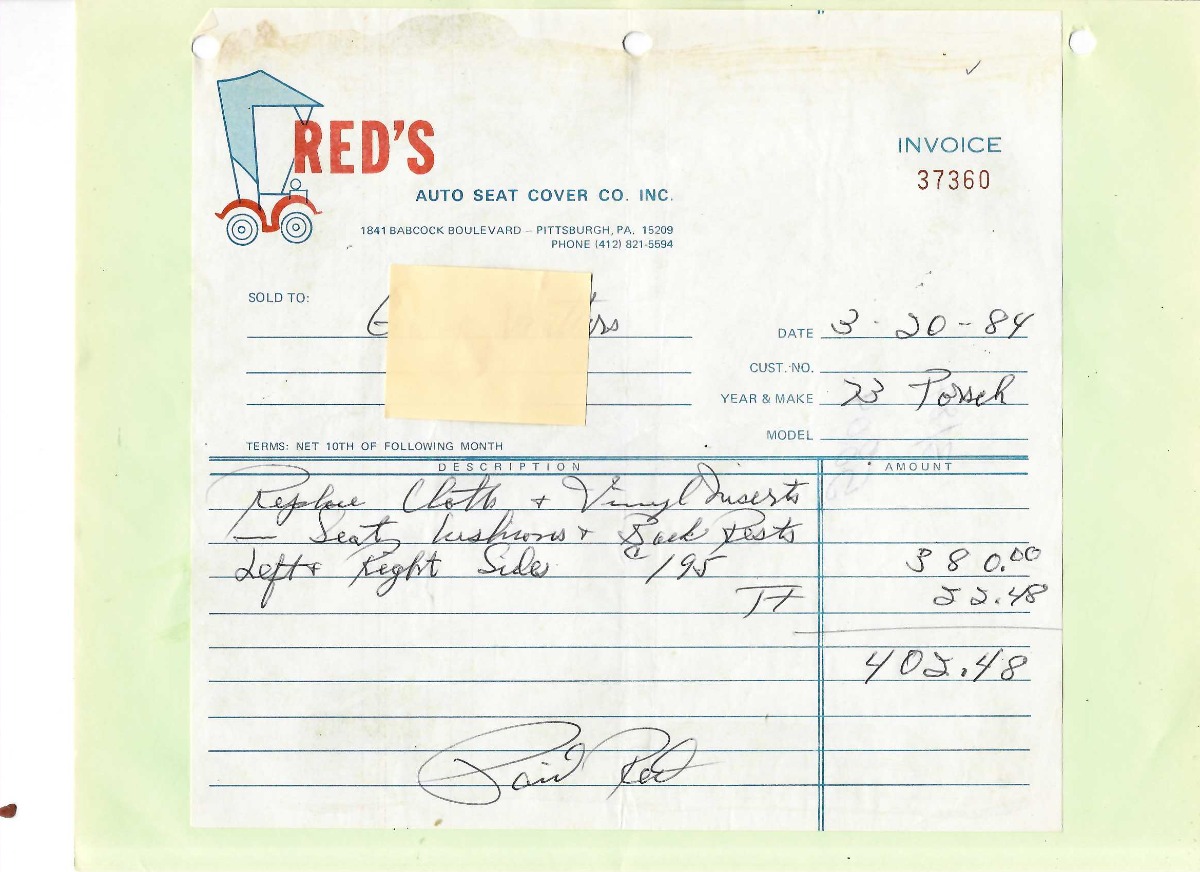 RED'S
AUTO SEAT COVER CO. INC.
1841 BABCOCK BOULEVARD – PITTSBURGH, PA. 15209
PHONE (412) 821-5594
INVOICE
37360
SOLD TO:
DATE 3-20-84
CUST. NO.
YEAR & MAKE 73 Porsch
MODEL
TERMS: NET 10TH OF FOLLOWING MONTH
DESCRIPTION AMOUNT
Replace Cloth + Vinyl Inserts
— Seat Cushions + Back Rests
Left + Right Side 195 380.00
22.48
402.48
Paid Red